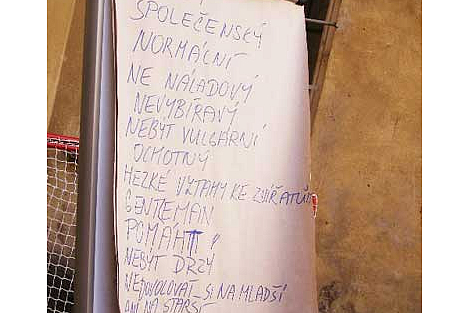 SPOLEČENSKÝ
NORMÁLNÍ
NE NÁLADOVÝ
NEVYBÍRAVÝ
NEBÝT VULGÁRNÍ
OCHOTNÝ
HEZKÉ VZTAHY KE ZVÍŘATŮM
GENTEMAN
POMÁHAT
NEBÝT DRZÝ
NEDOVOLOVAT SI NA MLADŠÍ
ANI NA STARŠÍ